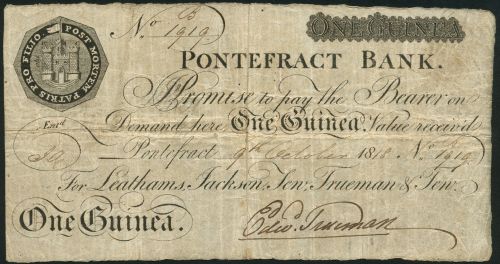 No. B 1919 ONE GUINEA
POST MORTEM PATRIS PRO FILIO
PONTEFRACT BANK.
Promise to pay the Bearer on
Demand here One Guinea Value receiv'd
Ent.d
Pontefract 9th October 1818 No. B 1919
For Leathams, Jackson, Sen. Trueman &
One Guinea.
Edwd. Trueman